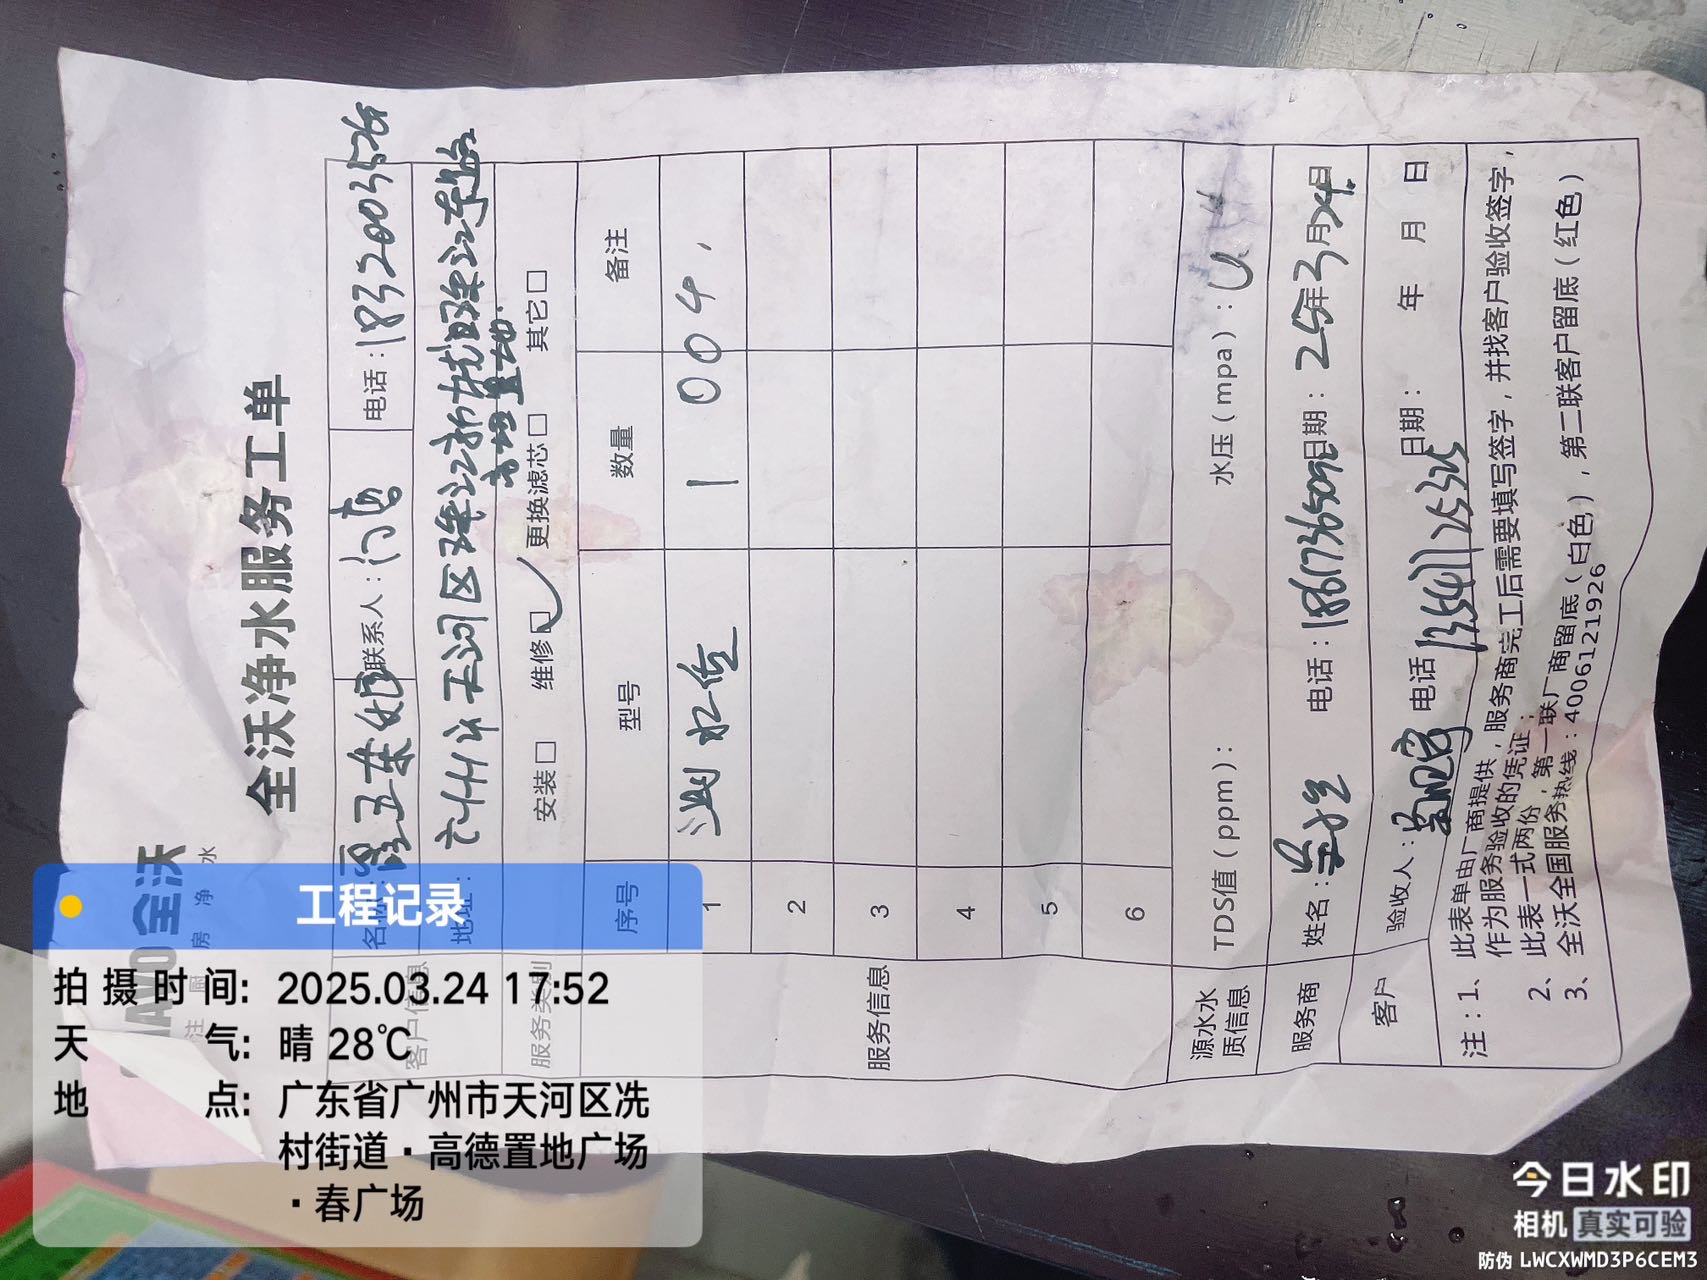 全沃
净水
全沃净水服务工单
客户信息
名称:
联系人:
电话:18320035265
地址:广州市天河区珠江新城珠江东路
高德置地.
服务类别 安装□ 维修□✓ 更换滤芯□ 其它□
服务信息 序号 型号 数量 备注
1 测水压 1 004
2
3
4
5
6
源水水质信息 TDS值(ppm): 水压(mpa):
服务商 姓名: 电话:18617365092 日期:25年3月24日
客户 验收人: 电话 日期: 年 月 日
注:1、此表单由厂商提供,服务商完工后需要填写签字,并找客户验收签字,
作为服务验收的凭证;
2、此表一式两份,第一联厂商留底(白色),第二联客户留底(红色)
3、全沃全国服务热线:4006121926
工程记录
拍摄时间: 2025.03.24 17:52
天气: 晴 28℃
地点: 广东省广州市天河区冼
村街道·高德置地广场
·春广场
今日水印
相机 真实可验
防伪 LWCXWMD3P6CEM3